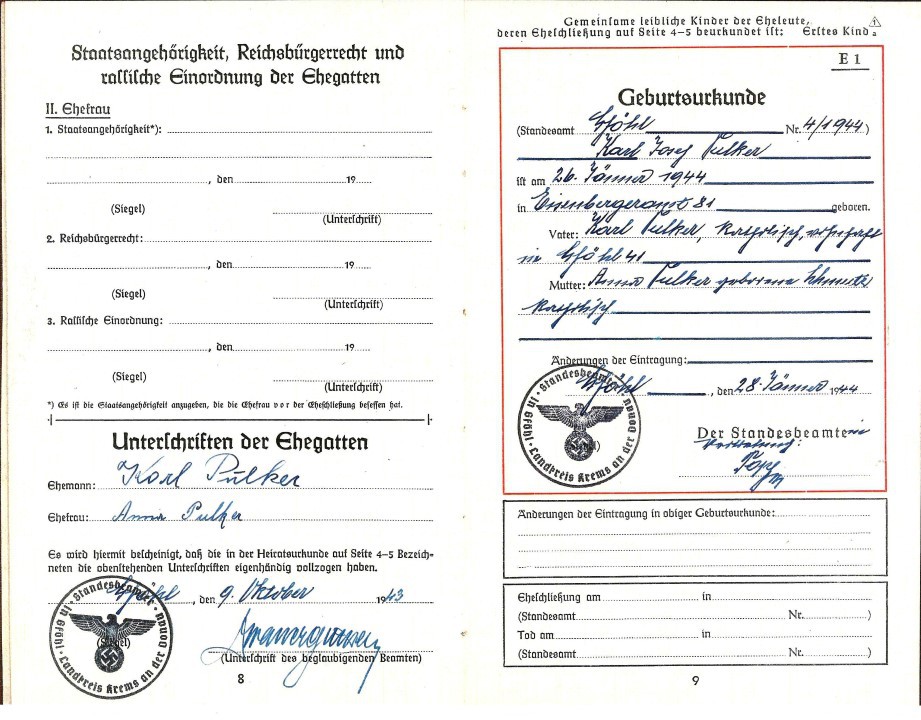 Staatsangehörigkeit, Reichsbürgerrecht und
rassische Einordnung der Ehegatten
II. Ehefrau
1. Staatsangehörigkeit*):
, den 19
(Siegel)
(Unterschrift)
2. Reichsbürgerrecht:
, den 19
(Siegel)
(Unterschrift)
3. Rassische Einordnung:
, den 19
(Siegel)
(Unterschrift)
*) Es ist die Staatsangehörigkeit anzugeben, die die Ehefrau vor der Eheschließung besessen hat.
Unterschriften der Ehegatten
Ehemann: Karl Pulker
Ehefrau: Anna Pulker
Es wird hiermit bescheinigt, daß die in der Heiratsurkunde auf Seite 4-5 Bezeich-
neten die obenstehenden Unterschriften eigenhändig vollzogen haben.
Gföhl, den 9. Oktober 1943
Standesbeamter in Gföhl · Landkreis Krems an der Donau
(Siegel)
(Unterschrift des beglaubigenden Beamten)
8
Gemeinsame leibliche Kinder der Eheleute,
deren Eheschließung auf Seite 4-5 beurkundet ist: Erstes Kind.
E 1
Geburtsurkunde
(Standesamt Gföhl Nr. 4/1944)
Karl Josef Pulker
ist am 26. Jänner 1944
in Eisenbergeramt 81 geboren.
Vater: Karl Pulker, katholisch, wohnhaft
in Gföhl 41
Mutter: Anna Pulker geborene
katholisch
Änderungen der Eintragung:
Gföhl, den 28. Jänner 1944
Standesbeamter in Gföhl · Landkreis Krems an der Donau
Der Standesbeamte
in Vertretung:
Änderungen der Eintragung in obiger Geburtsurkunde:
Eheschließung am in
(Standesamt Nr. )
Tod am in
(Standesamt Nr. )
9